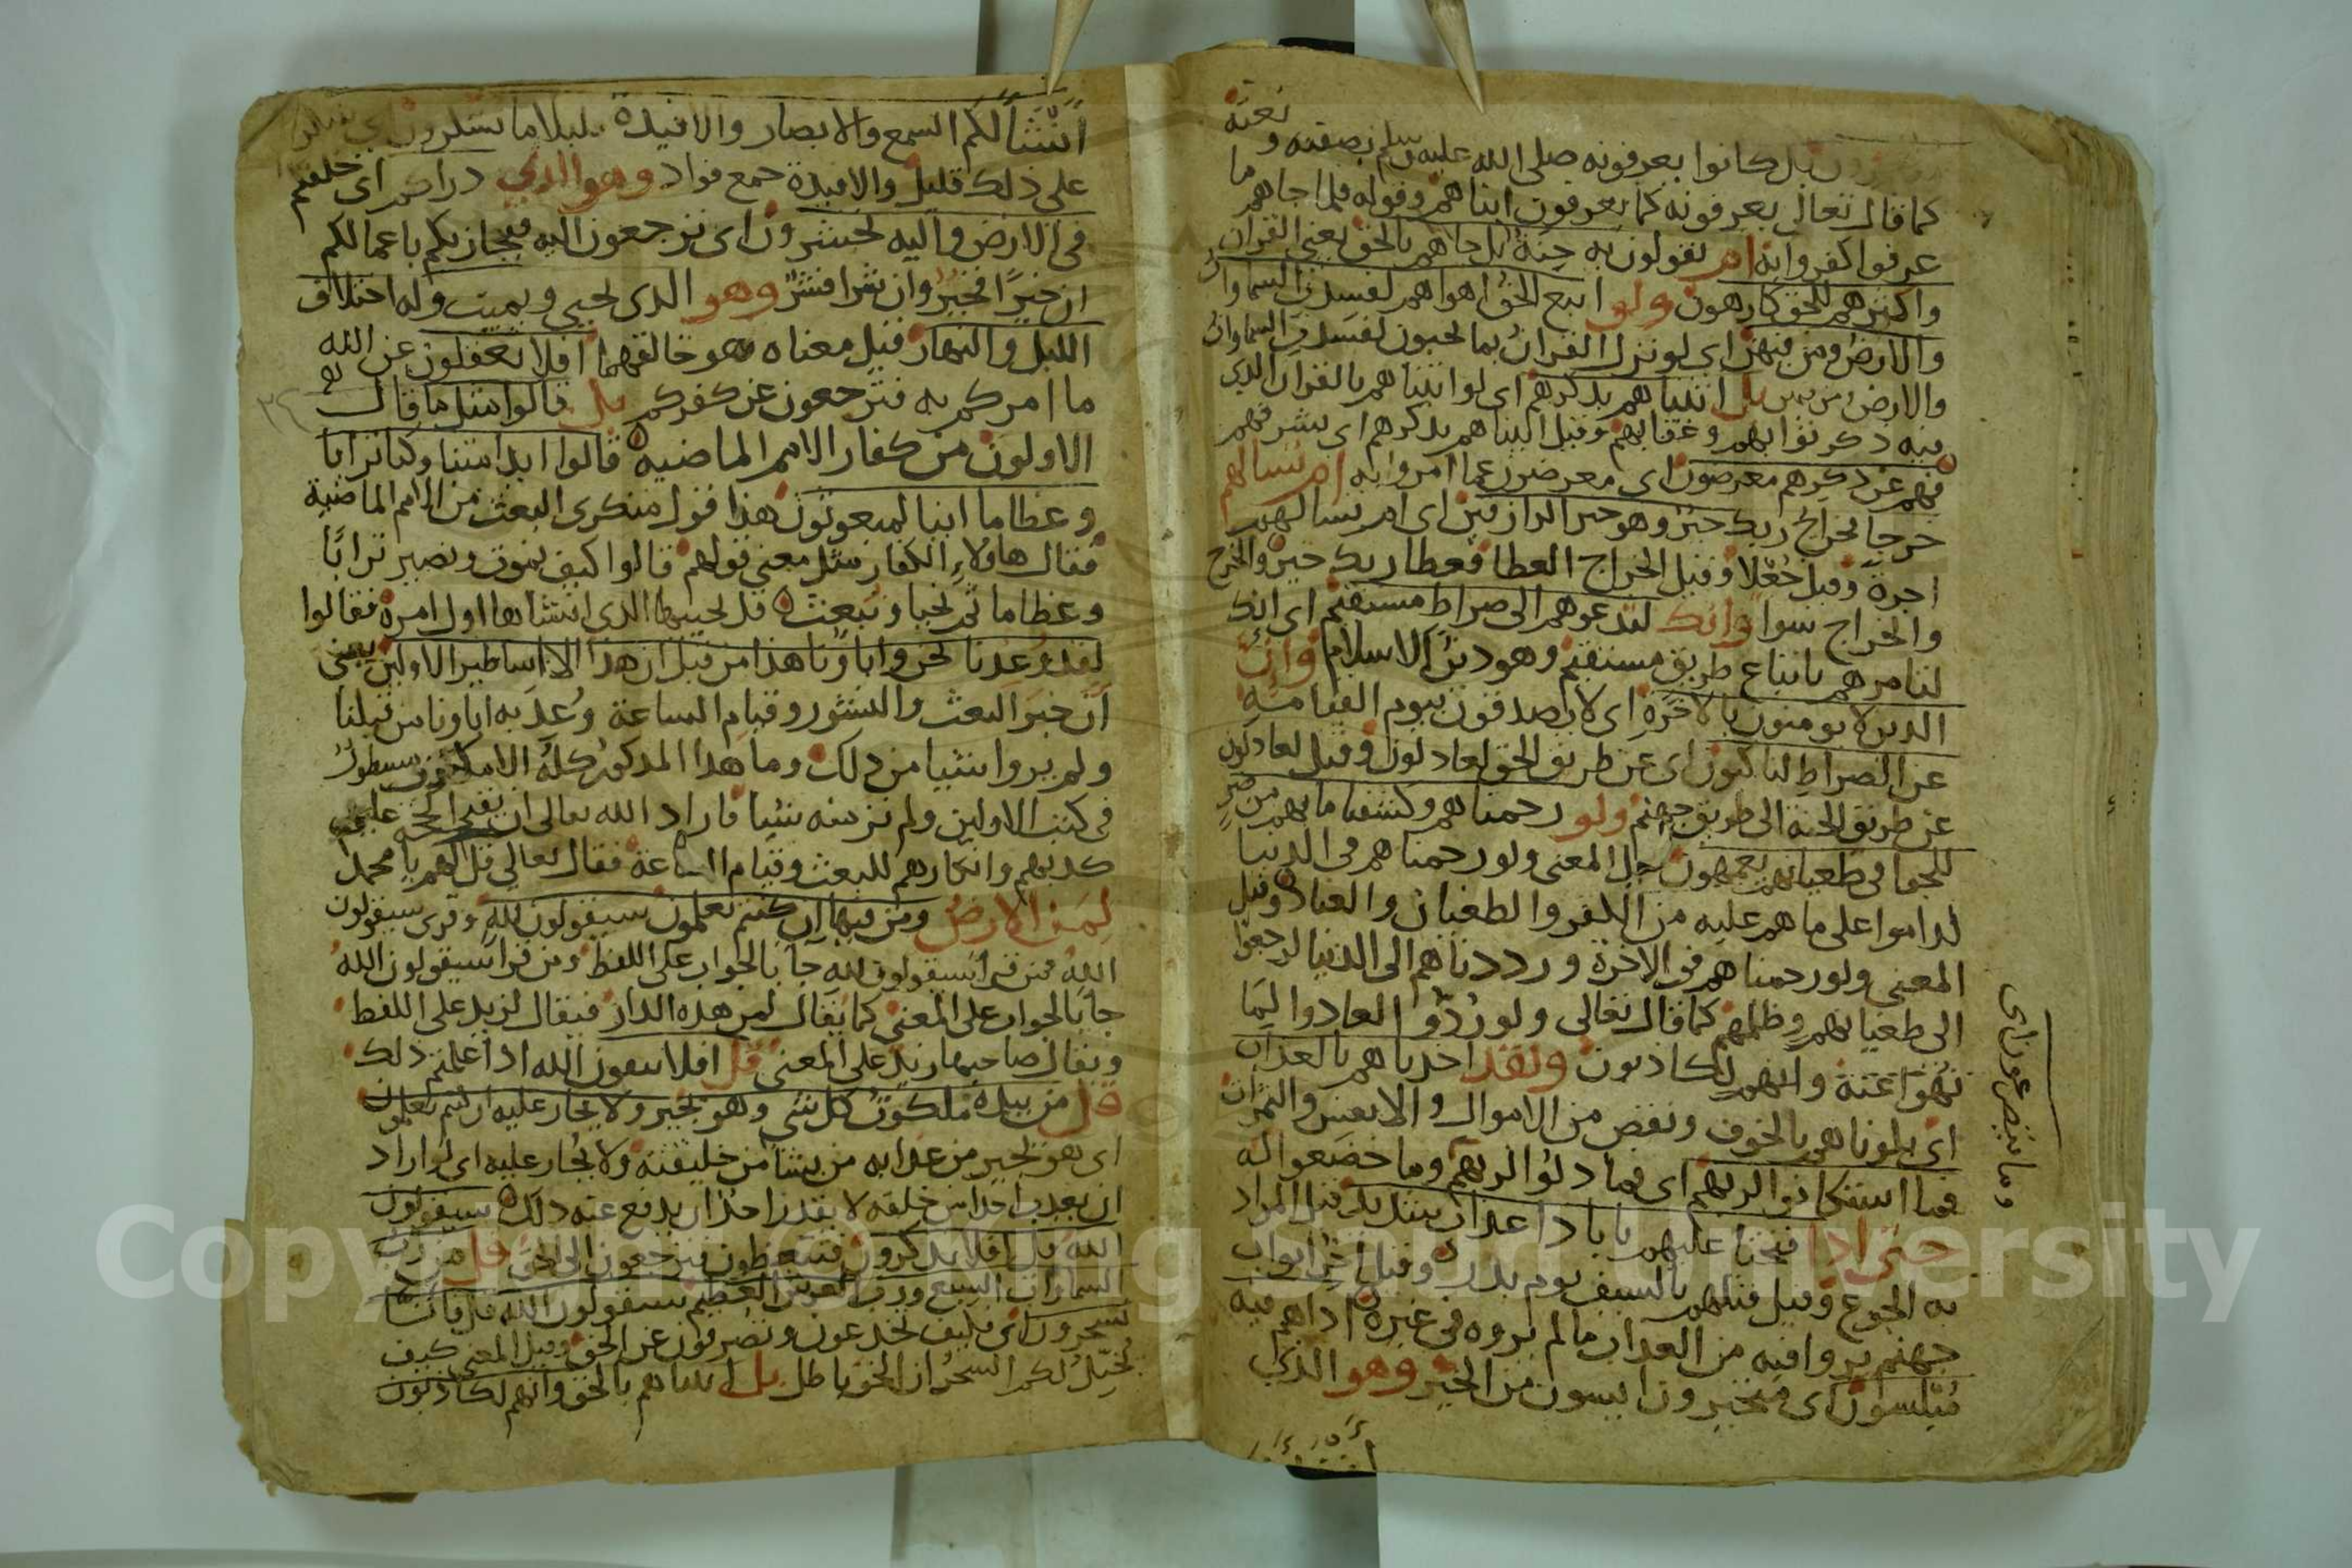 نعته
بل كانوا يعرفونه صلى الله عليه وسلم بصفته و
كما قال تعالى يعرفونه كما يعرفون ابناهم وقوله فلما جاهم ما
عرفوا كفروا به ام يقولون به جنة بل جاهم بالحق يعني القران
واكثرهم للحق كارهون ولو اتبع الحق اهواهم لفسدت السماوات
والارض ومن فيهن اى لو نزل القران بما يحبون لفسدت السماوات
والارض ومن فيهن بل اتيناهم بذكرهم اى لو اتيناهم بالقران الذي
فيه ذكر ثوابهم وعقابهم وقيل اتيناهم بذكرهم اى بشرفهم
فهم عن ذكرهم معرضون اى معرضون عما امروا به ام تسالهم
خرجا فخراج ربك خير وهو خير الرازقين اى ام تسالهم
اجرة وقيل جُعْلًا وقيل الخراج العطا فعطا ربك خير والخرج
والخراج سوا وانك لتدعوهم الى صراط مستقيم اى انك
لتامرهم باتباع طريق مستقيم وهو دين الاسلام وان
الذين لا يومنون بالاخرة اى لا يصدقون بيوم القيامة
عن الصراط لناكبون اى عن طريق الحق لعادلون وقيل لعادلون
عن طريق الجنة الى طريق جهنم ولو رحمناهم وكشفنا ما بهم من ضر
للجوا في طغيانهم يعمهون المعنى ولو رحمناهم في الدنيا
لداموا على ما هم عليه من الكفر والطغيان والعناد وقيل
المعنى ولو رحمناهم في الاخرة ورددناهم الى الدنيا لرجعوا
الى طغيانهم وظلمهم كما قال تعالى ولو رُدّوا لعادوا لِمَا
نُهُوا عَنْهُ وانهم لكاذبون ولقد اخذناهم بالعذاب
اى بلوناهم بالخوف ونقص من الاموال والانفس والثمرات
فما استكانوا لربهم اى فما ذلوا لربهم وما خضعوا له
وما يتضرعون اى
حتى اذا فتحنا عليهم بابا ذا عذاب شديد قيل المراد
به الجوع وقيل قتلهم بالسيف يوم بدر وقيل ابواب
جهنم يروا فيه من العذاب ما لم يروه في غيره اذا هم فيه
مُبْلسون اى متحيرون ايسون من الخير وهو الذي
انشأ لكم السمع والابصار والافيدة قليلا ما تشكرون
على ذلك قليل والافيدة جمع فواد وهو الذي ذراكم اى خلقكم
في الارض واليه تحشرون اى ترجعون اليه فيجازيكم باعمالكم
ان خيرًا فخير وان شرا فشر وهو الذي يحيي ويميت وله اختلاف
الليل والنهار قيل معناه هو خالقهما افلا تعقلون عن الله
ما امركم به فترجعون عن كفركم بل قالوا مثل ما قال
الاولون من كفار الامم الماضية قالوا ايذا متنا وكنا ترابا
وعظاما اينا لمبعوثون هذا قول منكرى البعث من الامم الماضية
فقال هاولاء الكفار مثل معنى قولهم قالوا كيف نموت ونصير ترابًا
وعظاما ثم نحيا ونبعث قل يحييها الذي انشاها اول امره فقالوا
لقد وُعِدنا نحن واباونا هذا من قبل ان هذا الا اساطير الاولين يعني
اَنّ خبرَ البعث والنشور وقيام الساعة وُعِد به اباونا من قبلنا
ولم يروا شيا من ذلك وما هذا المذكور كله الا مسطور
في كتب الاولين ولم نر منه شيا فاراد الله تعالى ان يقيم الحجة عليهم
كذبهم وانكارهم للبعث وقيام الساعة فقال تعالى قل لهم يا محمد
لِمَن الارض ومن فيها ان كنتم تعلمون سيقولون لله وقرى سيقولون
اللهُ فمن قرا سيقولون لله جا بالجواب على اللفظ ومن قرا سيقولون الله
جا بالجواب على المعنى كما يقال لمن هذه الدار فيقال لزيد على اللفظ
ويقال صاحبها زيد على المعنى قل افلا تتقون الله اذا علمتم ذلك
قل من بيده ملكوت كل شي وهو يجير ولا يجار عليه ان كنتم تعلمون
اى هو يجير من عذابه من يشا من خليقته ولا يُجار عليه اى لو اراد
ان يعذب احدا من خلقه لا يقدر احد ان يدفع عنه ذلك سيقولون
الله قل افلا تذكرون فتتعظون فترجعون الى الحق قل من رب
السماوات السبع ورب العرش العظيم سيقولون الله قل فانى
تسحرون اى فكيف تخدعون وتصرفون عن الحق وقيل المعنى كيف
يُخيّلُ لكم السحر ان الحق باطل بل اتيناهم بالحق وانهم لكاذبون
Copyright © King Saud University